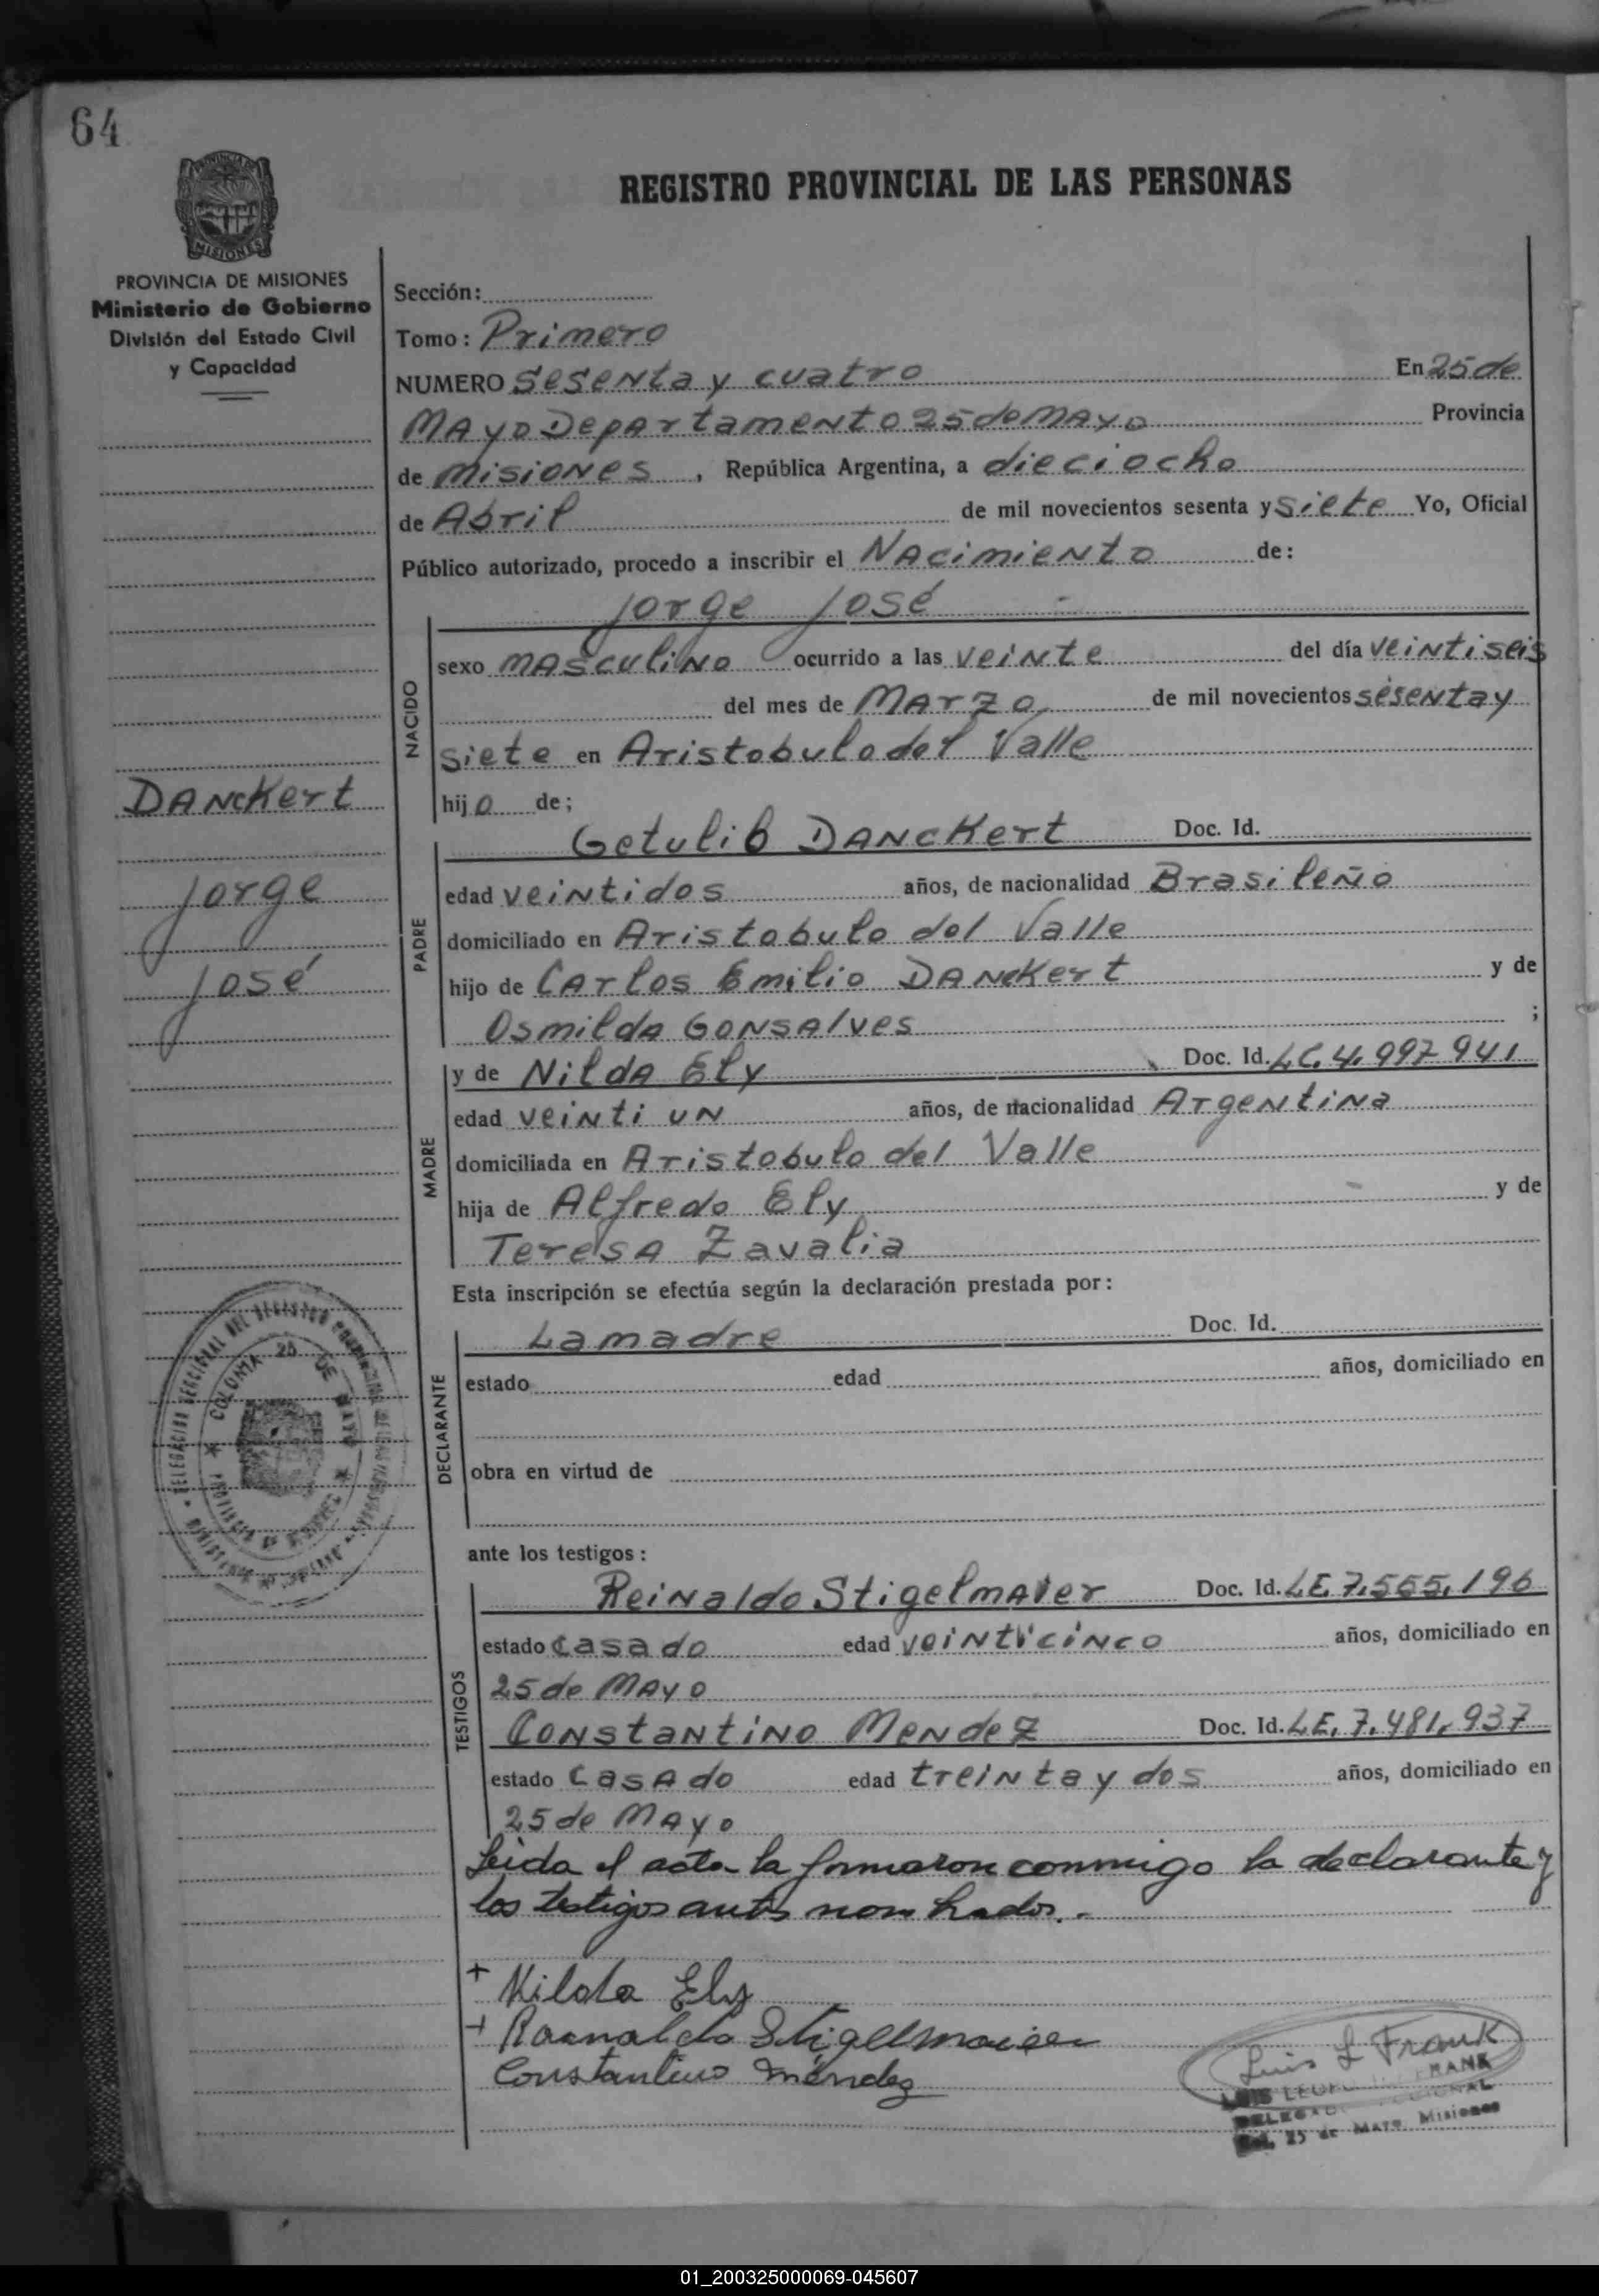 64
REGISTRO PROVINCIAL DE LAS PERSONAS
MISIONES
PROVINCIA DE MISIONES
Ministerio de Gobierno
División del Estado Civil
y Capacidad
Sección:
Tomo: Primero
NUMERO sesenta y cuatro En 25 de
Mayo Departamento 25 de Mayo Provincia
de Misiones, República Argentina, a dieciocho
de Abril de mil novecientos sesenta y siete Yo, Oficial
Público autorizado, procedo a inscribir el Nacimiento de:
Jorge José
NACIDO
sexo masculino ocurrido a las veinte del día veintiseis
del mes de Marzo de mil novecientos sesenta y
siete en Aristobulo del Valle
hijo de;
Danckert
Jorge
José
PADRE
Getulio Danckert Doc. Id.
edad veintidos años, de nacionalidad Brasileño
domiciliado en Aristobulo del Valle
hijo de Carlos Emilio Danckert y de
Osmilda Gonsalves ;
MADRE
y de Nilda Ely Doc. Id. LC. 4.997 941
edad veinti un años, de nacionalidad Argentina
domiciliada en Aristobulo del Valle
hija de Alfredo Ely y de
Teresa Zavalia
Esta inscripción se efectúa según la declaración prestada por:
DECLARANTE
La madre Doc. Id.
estado edad años, domiciliado en
obra en virtud de
COLONIA 25 DE MAYO
ante los testigos:
TESTIGOS
Reinaldo Stigelmaier Doc. Id. LE. 7.565.196
estado casado edad veinticinco años, domiciliado en
25 de Mayo
Constantino Mendez Doc. Id. LE. 7.481.937
estado casado edad treinta y dos años, domiciliado en
25 de Mayo
Leida el acta la firmaron conmigo la declarante y
los testigos antes nombrados.-
+ Nilda Ely
+ Stigelmaier
Constantino Méndez
Luis L Frank
LUIS FRANK
25 de Mayo, Misiones
01_200325000069-045607